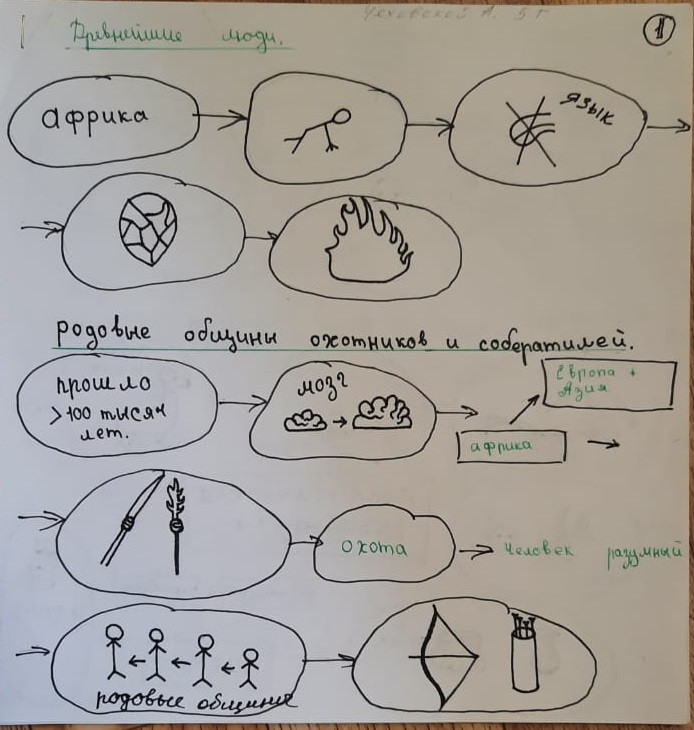 Чеховской А. 5 г
1
Древнейшие люди.
африка
язык
родовые общины охотников и собератилей.
прошло
>100 тысяч
лет.
мозг
Европа +
Азия
африка
охота
человек разумный
родовые общины